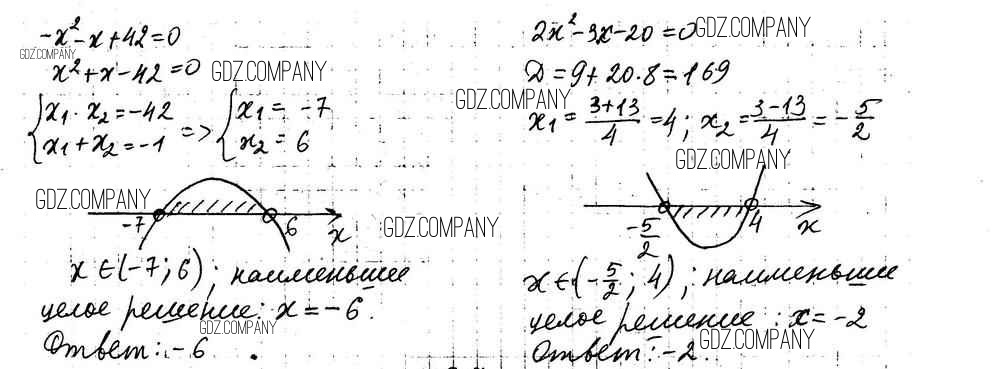 -x²-x+42=0
GDZ.COMPANY
x²+x-42=0 GDZ.COMPANY
{x₁·x₂=-42
{x₁+x₂=-1 => {x₁=-7
{x₂=6
GDZ.COMPANY
-7 6 x
GDZ.COMPANY
x∈(-7;6); наименьшее
целое решение: x=-6.
GDZ.COMPANY
Ответ: -6.
2x²-3x-20=0 GDZ.COMPANY
D=9+20·8=169
GDZ.COMPANY
x₁=(3+13)/4=4; x₂=(3-13)/4=-5/2
GDZ.COMPANY
-5/2 4 x
x∈(-5/2; 4); наименьшее
целое решение: x=-2
GDZ.COMPANY
Ответ: -2.